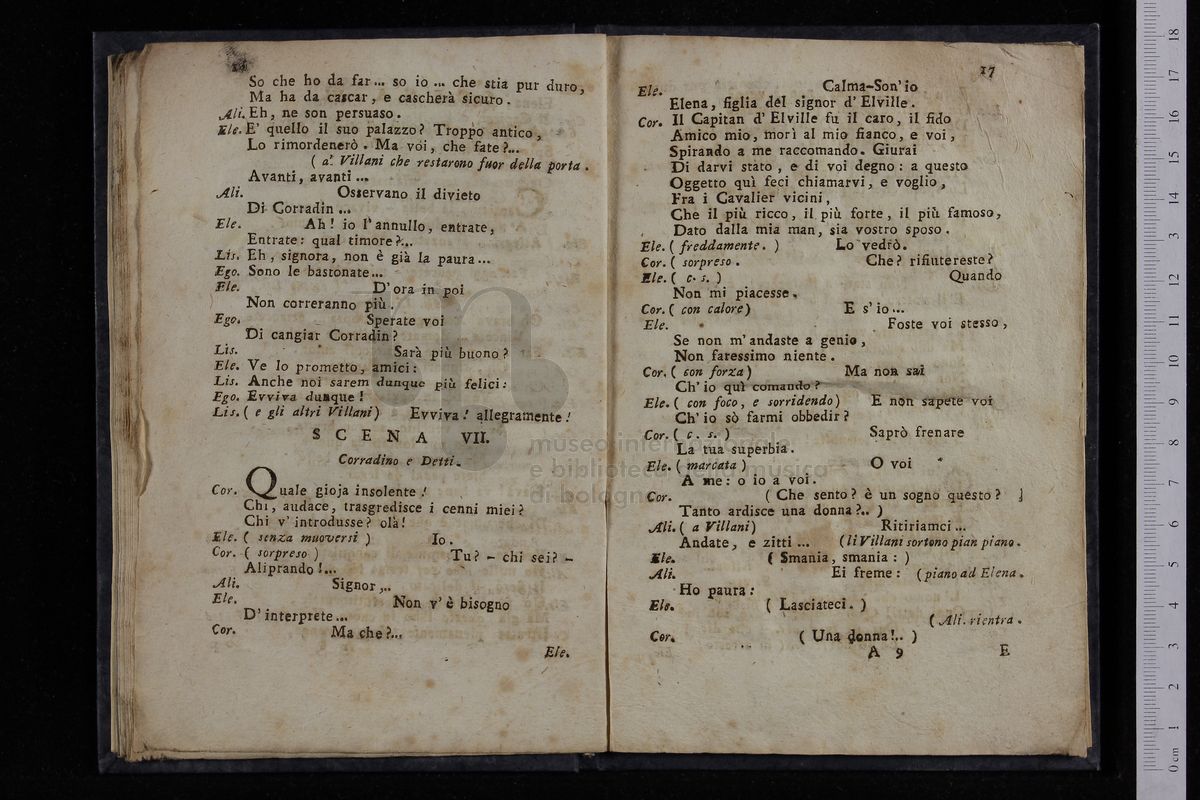 So che ho da far... so io ... che stia pur duro,
Ma ha da cascar, e cascherà sicuro.
Ali. Eh, ne son persuaso.
Ele. E' quello il suo palazzo? Troppo antico,
Lo rimordenerò. Ma voi, che fate?...
( a' Villani che restarono fuor della porta.
Avanti, avanti ...
Ali. Osservano il divieto
Di Corradin ...
Ele. Ah! io l'annullo, entrate,
Entrate: qual timore?...
Lis. Eh, signora, non è già la paura...
Ego. Sono le bastonate...
Ele. D'ora in poi
Non correranno più.
Ego. Sperate voi
Di cangiar Corradin?
Lis. Sarà più buono?
Ele. Ve lo prometto, amici:
Lis. Anche noi sarem dunque più felici:
Ego. Evviva dunque!
Lis. ( e gli altri Villani) Evviva! allegramente!
SCENA VII.
Corradino e Detti.
Cor. Quale gioja insolente!
Chi, audace, trasgredisce i cenni miei?
Chi v'introdusse? olà!
Ele. ( senza muoversi ) Io.
Cor. ( sorpreso ) Tu? - chi sei? -
Aliprando!...
Ali. Signor...
Ele. Non v'è bisogno
D'interprete...
Cor. Ma che?...
Ele.
17
Ele. Calma-Son'io
Elena, figlia del signor d'Elville.
Cor. Il Capitan d'Elville fu il caro, il fido
Amico mio, morì al mio fianco, e voi,
Spirando a me raccomando. Giurai
Di darvi stato, e di voi degno: a questo
Oggetto quì feci chiamarvi, e voglio,
Fra i Cavalier vicini,
Che il più ricco, il più forte, il più famoso,
Dato dalla mia man, sia vostro sposo.
Ele. ( freddamente. ) Lo vedrò.
Cor. ( sorpreso. Che? rifiutereste?
Ele. ( c. s. ) Quando
Non mi piacesse.
Cor. ( con calore) E s'io...
Ele. Foste voi stesso,
Se non m'andaste a genio,
Non faressimo niente.
Cor. ( con forza) Ma non sai
Ch'io quì comando?
Ele. ( con foco, e sorridendo) E non sapete voi
Ch'io sò farmi obbedir?
Cor. ( c. s. ) Saprò frenare
La tua superbia.
Ele. ( marcata ) O voi
A me: o io a voi.
Cor. ( Che sento? è un sogno questo?
Tanto ardisce una donna?.. )
Ali. ( a Villani) Ritiriamci ...
Andate, e zitti ... (li Villani sortono pian piano.
Ele. ( Smania, smania: )
Ali. Ei freme: (piano ad Elena.
Ho paura:
Ele. ( Lasciateci. )
( Ali. rientra.
Cor. ( Una donna!.. )
A 9 E
museo internazionale
e biblioteca della musica
di bologna
0 cm 1 2 3 4 5 6 7 8 9 10 11 12 13 14 15 16 17 18